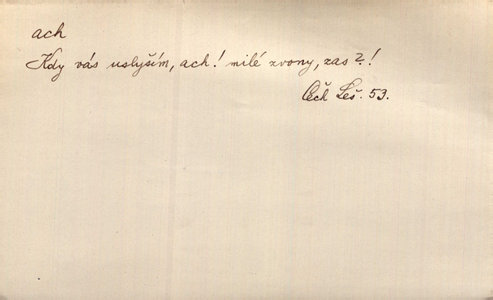 ach
Kdy vás uslyším, ach! milé zvony, zas?!
Čech Leš. 53.